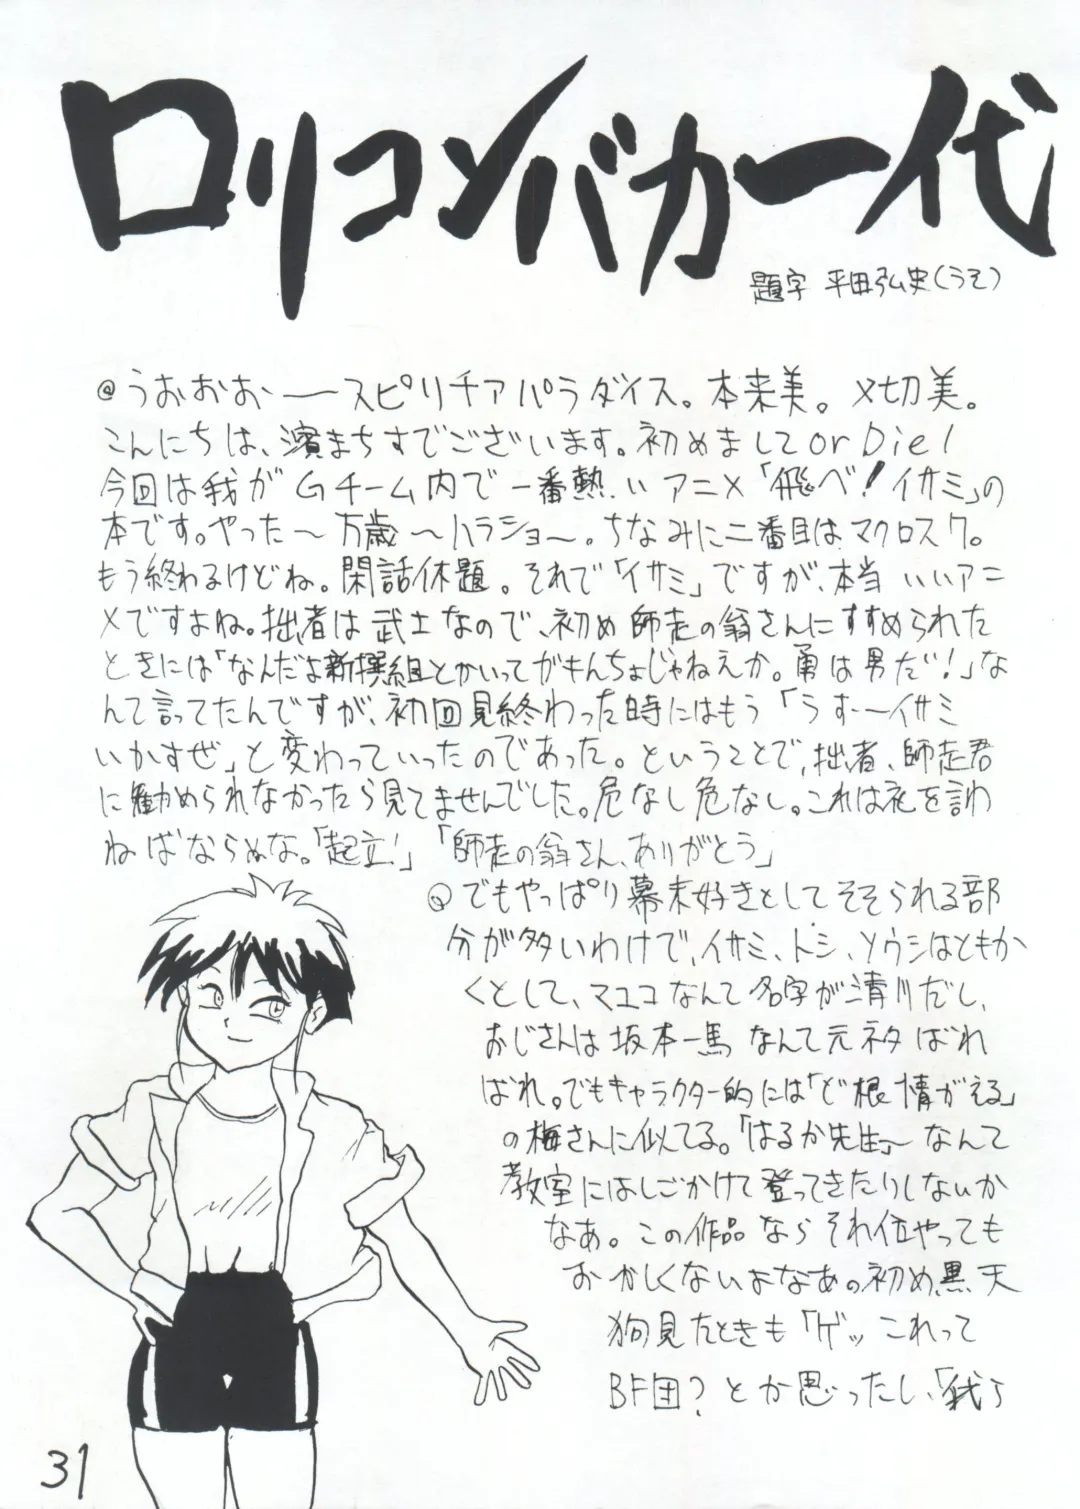 ロリコンバカ一代
題字 平田弘史(うそ)
@うおおおーースピリチアパラダイス。本来美。〆切美。
こんにちは、濱まちすでございます。初めまして or Die!
今回は我がGチーム内で一番熱いアニメ「飛べ!イサミ」の
本です。やった〜万歳〜ハラショー。ちなみに二番目はマクロス7。
もう終わるけどね。閑話休題。それで「イサミ」ですが、本当いいアニ
メですよね。拙者は武士なので、初め師走の翁さんにすすめられた
ときには「なんだよ新撰組とかいってがきんちょじゃねえか。勇は男だ!」な
んて言ってたんですが、初回見終わった時にはもう「うすーイサミ
いかすぜ」と変わっていったのであった。ということで、拙者、師走君
に勧められなかったら見てませんでした。危なし危なし。これは礼を言わ
ねばならぬな。「起立!」「師走の翁さん、ありがとう」
@でもやっぱり幕末好きとしてそそられる部
分が多いわけで、イサミ、トシ、ソウシはともか
くとして、マユコなんて名字が清川だし、
おじさんは坂本一馬なんて元ネタばれ
ばれ。でもキャラクター的には「ど根情がえる」
の梅さんに似てる。「はるか先生〜」なんて
教室にはしごかけて登ってきたりしないか
なあ。この作品ならそれ位やっても
おかしくないよなあ。初め、黒天
狗見たときも「ゲッこれって
BF団?とか思ったし、「我ら
31